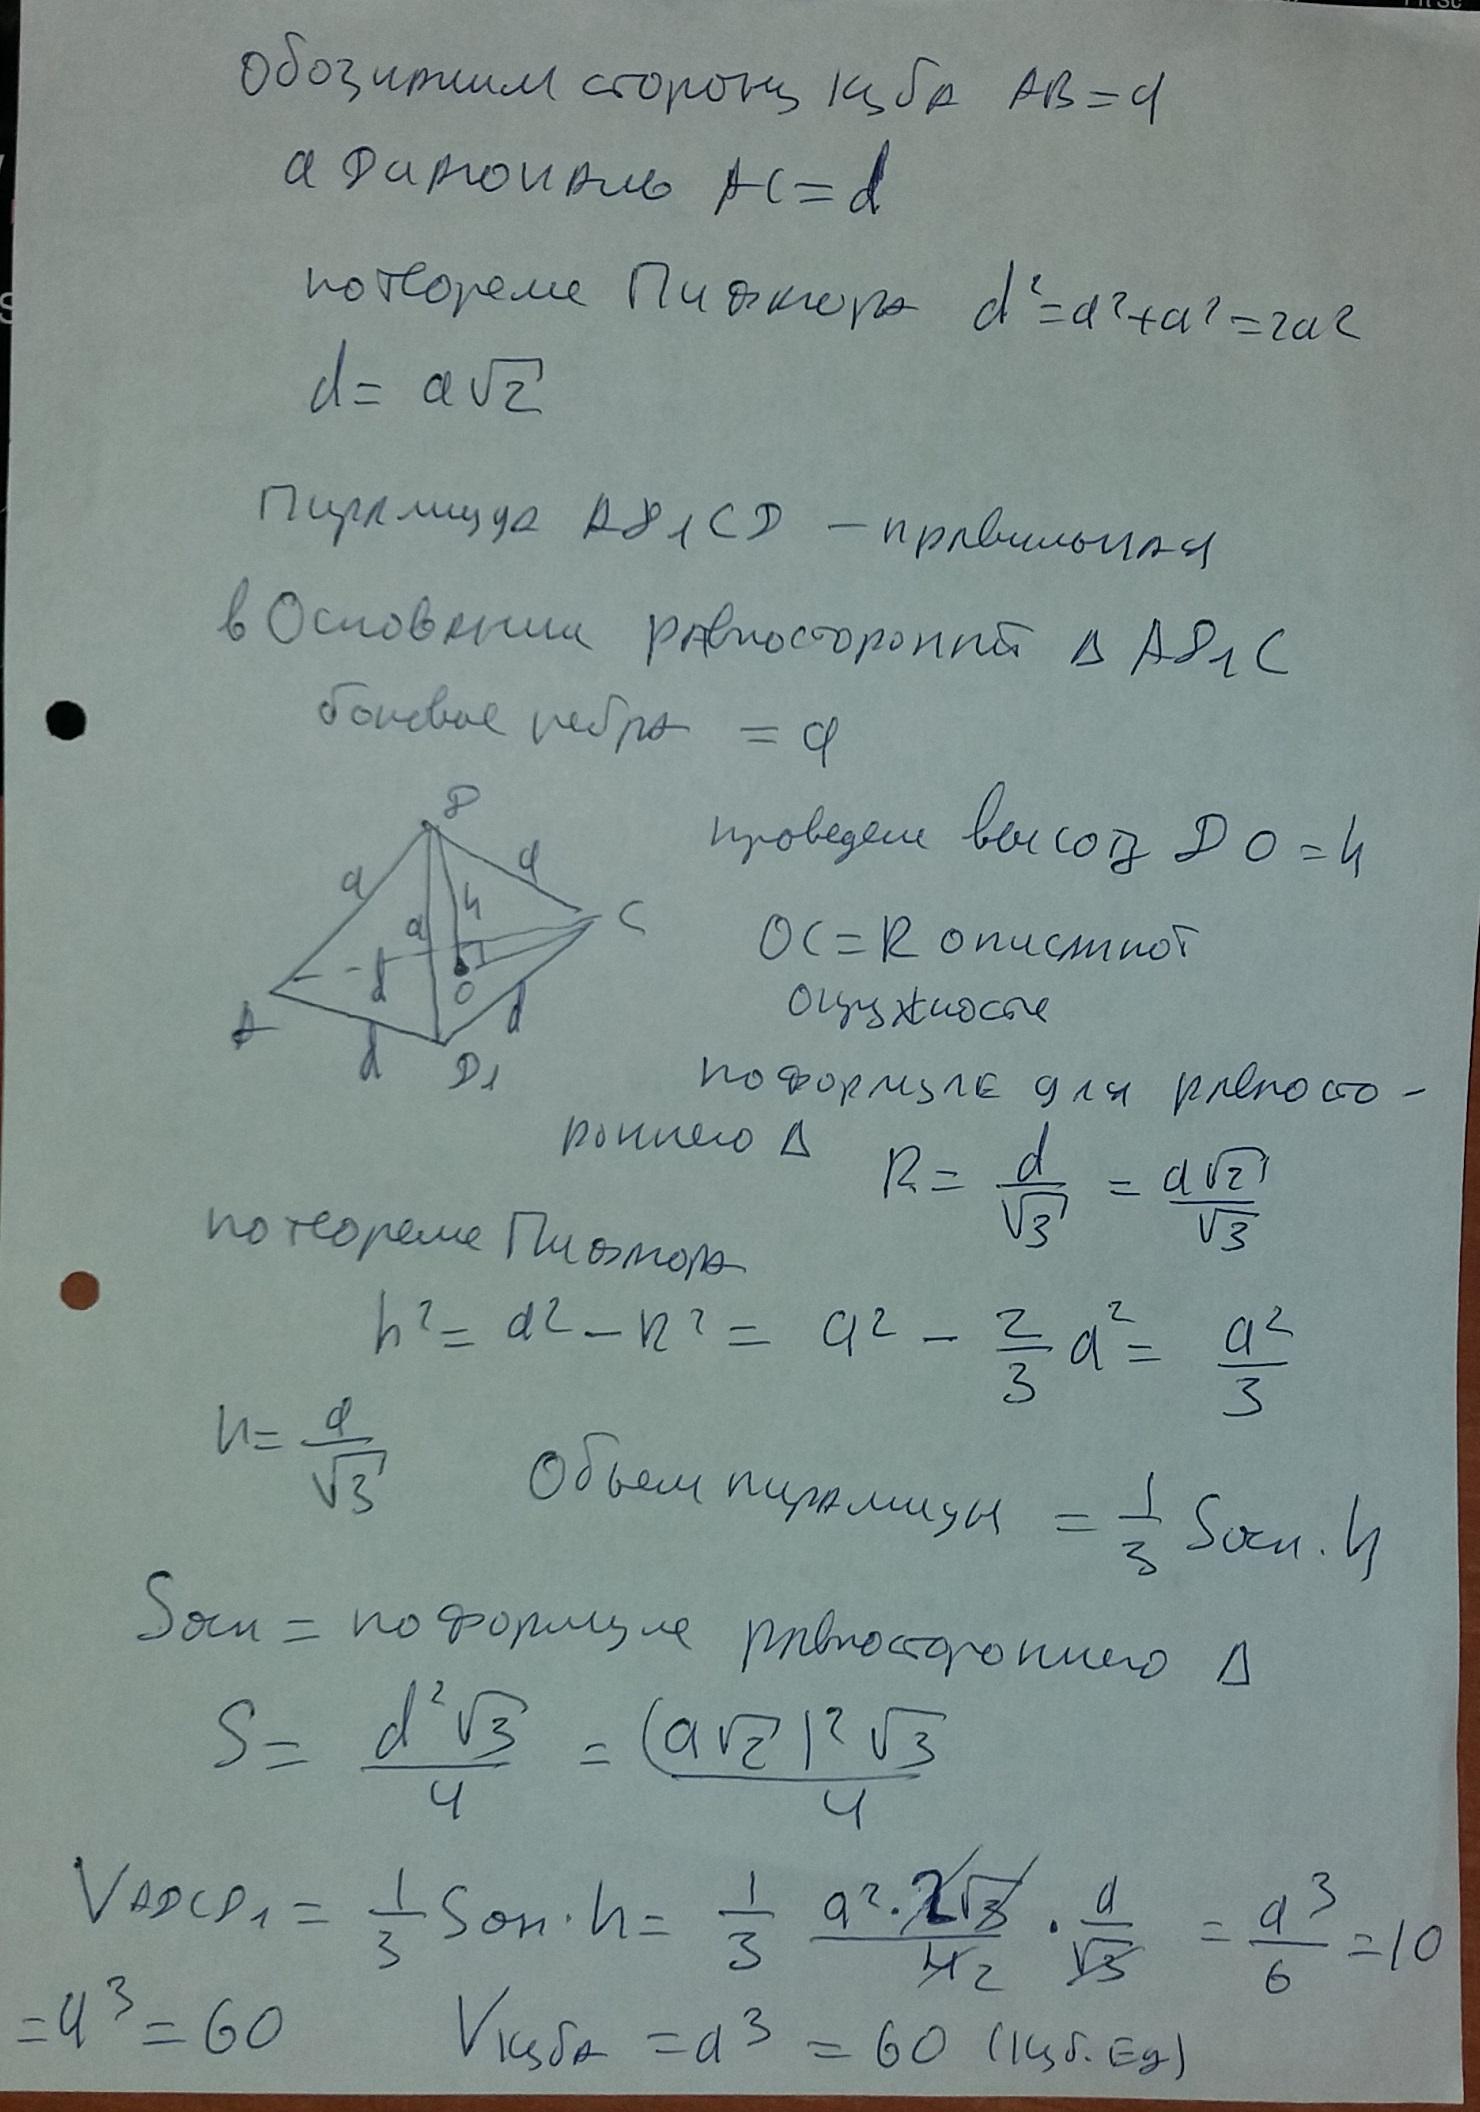 Обозначим сторону куба AB = a
а Диагональ AC = d
по теореме Пифагора d² = a² + a² = 2a²
d = a√2
Пирамида AD₁CD – правильная
в Основании равносторонний Δ AD₁C
боковые ребра = a
проведем высоту DO = h
D
a
a
h
a
C
d
O
A
d
d
D₁
OC = R описанной
окружности
по формуле для равносто-
роннего Δ R = d/√3 = a√2/√3
по теореме Пифагора
h² = a² – R² = a² – 2/3 a² = a²/3
h = a/√3 Объем пирамиды = 1/3 Sосн. h
Sосн = по формуле равностороннего Δ
S = d²√3/4 = (a√2)²√3/4
VADCD₁ = 1/3 Sосн · h = 1/3 a²·2√3/4 2 · a/√3 = a³/6 = 10
= a³ = 60 Vкуба = a³ = 60 (куб. Ед)